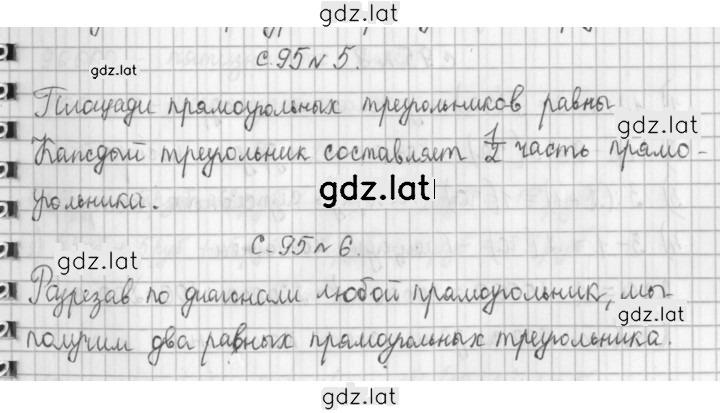 gdz.lat
с.95 № 5.
gdz.lat
Площади прямоугольных треугольников равны
gdz.lat
Каждый треугольник составляет 1/2 часть прямо-
gdz.lat
угольника.
с.95 № 6.
gdz.lat
Разрезав по диагонали любой прямоугольник, мы
gdz.lat
получим два равных прямоугольных треугольника.
gdz.lat